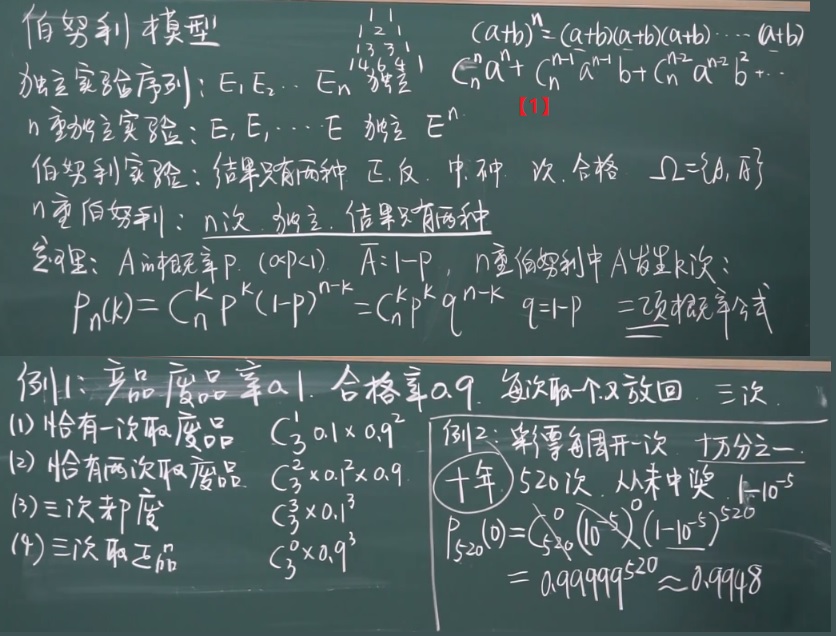 伯努利模型
1 1
1 2 1
1 3 3 1
1 4 6 4 1
(a+b)ⁿ=(a+b)(a+b)(a+b)·····(a+b)
Cₙⁿaⁿ+Cₙⁿ⁻¹aⁿ⁻¹b+Cₙⁿ⁻²aⁿ⁻²b²+···
【1】
独立实验序列：E₁E₂··Eₙ 独立
n重独立实验：E,E,····E 独立 Eⁿ
伯努利实验：结果只有两种 正.反. 中.不中. 次.合格 Ω={A,A̅}
n重伯努利：n次.独立.结果只有两种
定理：A的概率p.(0<p<1) A̅=1-p，n重伯努利中A发生k次：
Pₙ(k)=Cₙᵏpᵏ(1-p)ⁿ⁻ᵏ=Cₙᵏpᵏqⁿ⁻ᵏ q=1-p 二项概率公式
例1：产品废品率0.1.合格率0.9.每次取一个又放回.三次.
(1)恰有一次取废品 C₃¹0.1×0.9²
(2)恰有两次取废品 C₃²×0.1²×0.9
(3)三次都废 C₃³×0.1³
(4)三次取正品 C₃⁰×0.9³
例2：彩票每周开一次.十万分之一.
十年 520次.从未中奖 1-10⁻⁵
P₅₂₀(0)=C₅₂₀⁰(10⁻⁵)⁰(1-10⁻⁵)⁵²⁰
=0.99999⁵²⁰≈0.9948